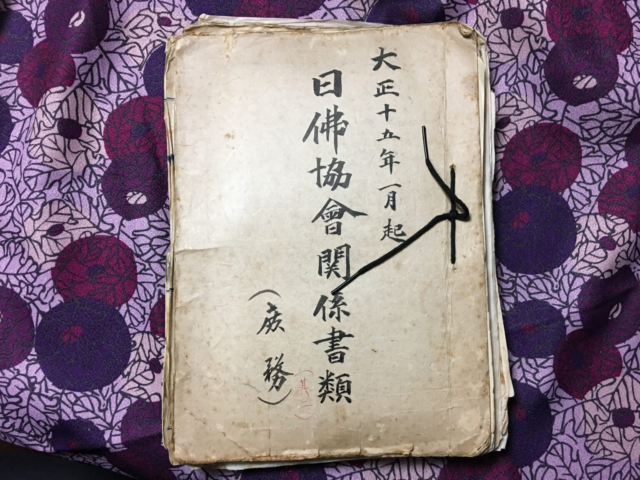 大正十五年一月起
日佛協會関係書類
(庶務)